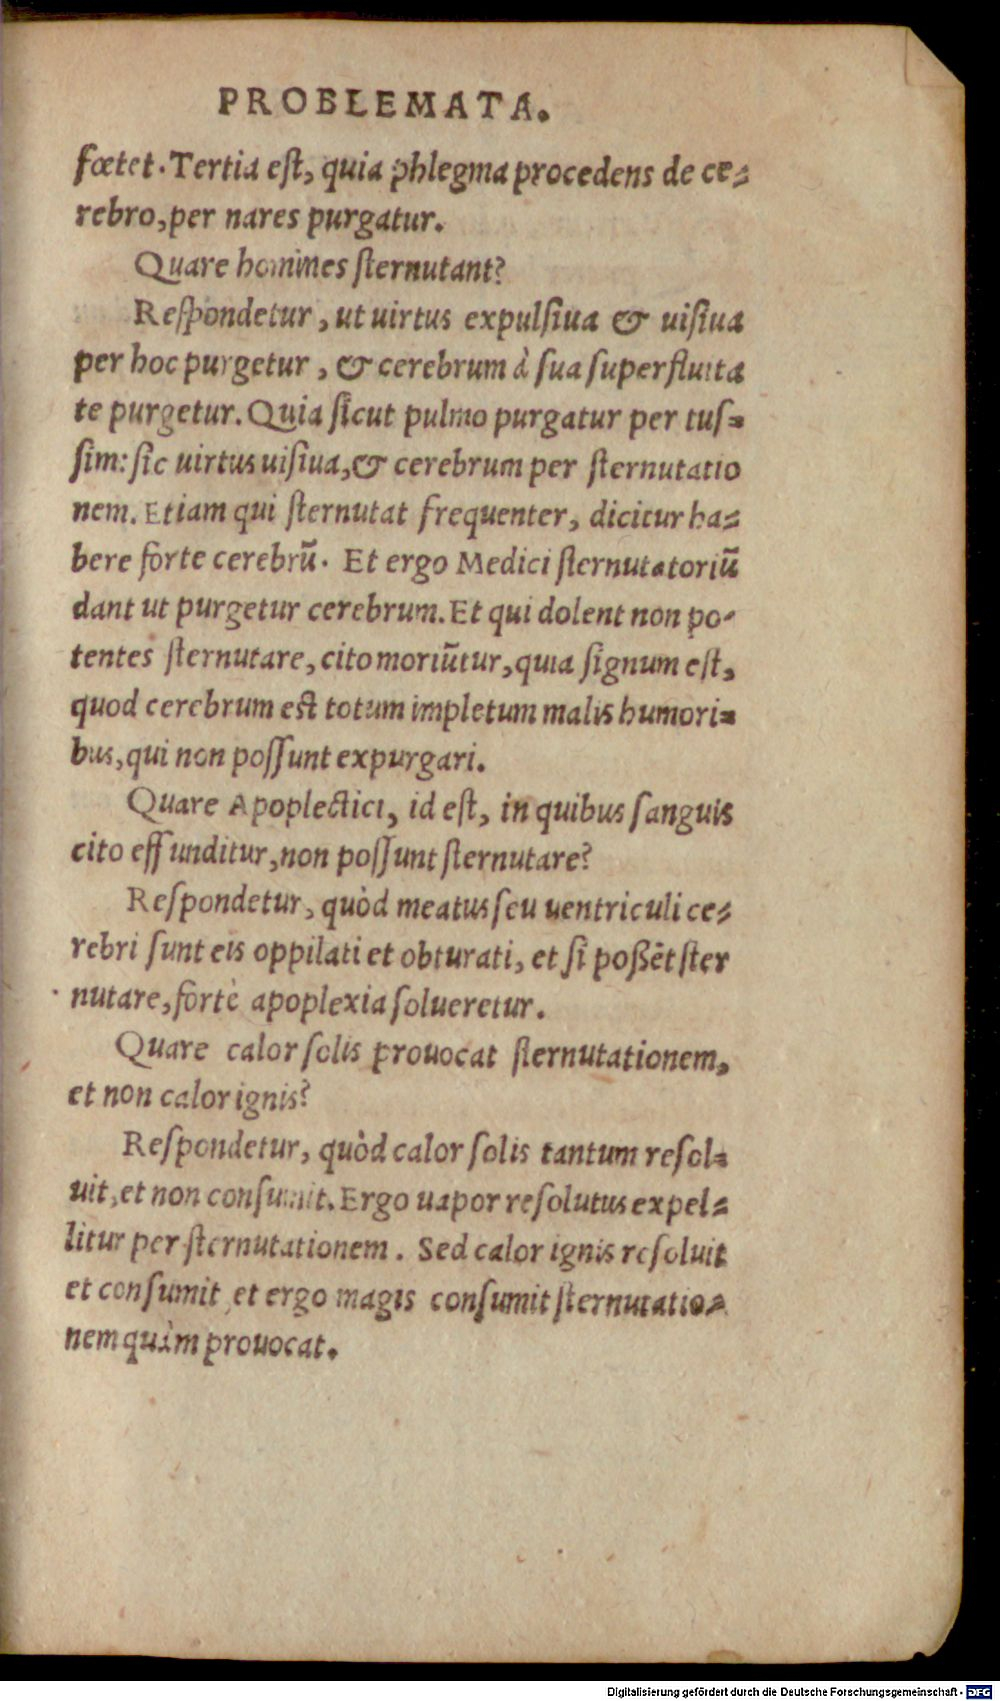 PROBLEMATA.
fœtet. Tertia eſt, quia phlegma procedens de ce⸗
rebro, per nares purgatur.
Quare homines ſternutant?
Reſpondetur, ut uirtus expulſiua & uiſiua
per hoc purgetur, & cerebrum à ſua ſuperfluita
te purgetur. Quia ſicut pulmo purgatur per tuſ⸗
ſim: ſic uirtus uiſiua, & cerebrum per ſternutatio
nem. Etiam qui ſternutat frequenter, dicitur ha⸗
bere forte cerebrũ. Et ergo Medici ſternutatoriũ
dant ut purgetur cerebrum. Et qui dolent non po⸗
tentes ſternutare, cito moriũtur, quia ſignum eſt,
quod cerebrum est totum impletum malis humori⸗
bus, qui non poſſunt expurgari.
Quare Apoplectici, id eſt, in quibus ſanguis
cito effunditur, non poſſunt ſternutare?
Reſpondetur, quòd meatus ſeu uentriculi ce⸗
rebri ſunt eis oppilati et obturati, et ſi poßẽt ſter
nutare, fortè apoplexia ſolueretur.
Quare calor ſolis prouocat ſternutationem,
et non calor ignis?
Reſpondetur, quòd calor ſolis tantum reſol⸗
uit, et non conſumit. Ergo uapor reſolutus expel⸗
litur per ſternutationem. Sed calor ignis reſoluit
et conſumit, et ergo magis conſumit ſternutatio⸗
nem quàm prouocat.
Digitalisierung gefördert durch die Deutsche Forschungsgemeinschaft - DFG